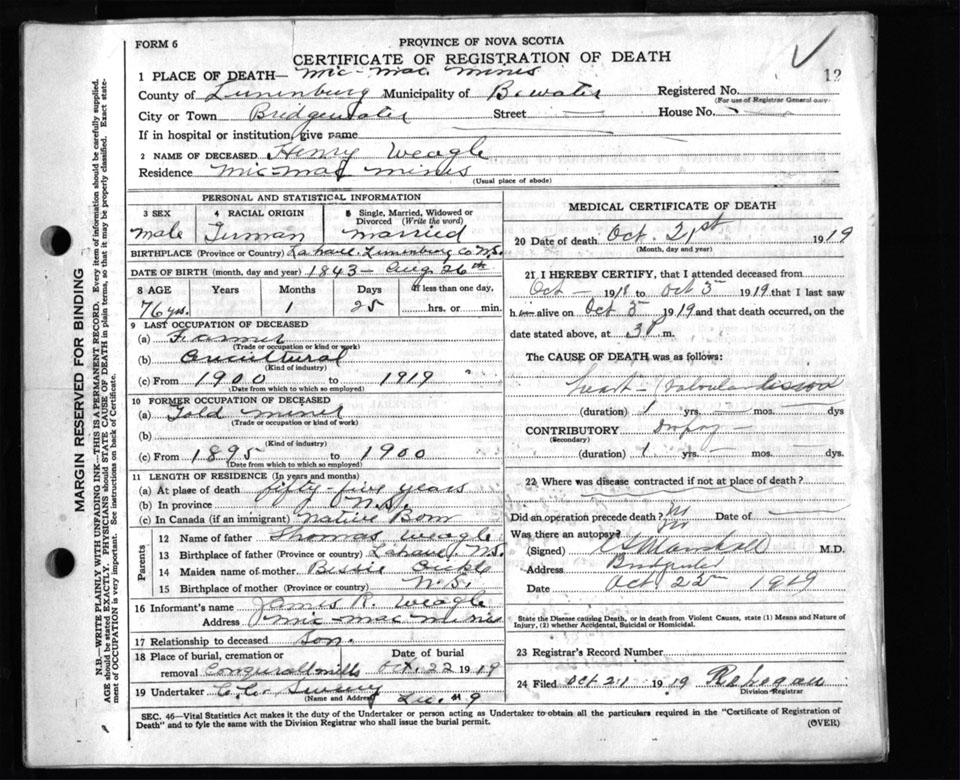 FORM 6
PROVINCE OF NOVA SCOTIA
CERTIFICATE OF REGISTRATION OF DEATH
12
1 PLACE OF DEATH— Mic-Mac Mines
County of Lunenburg Municipality of B.water Registered No.
(For use of Registrar General only)
City or Town Bridgewater Street — House No. —
If in hospital or institution, give name
2 NAME OF DECEASED Henry Weagle
Residence Mic-Mac Mines
(Usual place of abode)
PERSONAL AND STATISTICAL INFORMATION
3 SEX 4 RACIAL ORIGIN 5 Single, Married, Widowed or Divorced (Write the word)
Male German Married
BIRTHPLACE (Province or Country) Lahave Lunenburg Co N.S.
DATE OF BIRTH (month, day and year) 1843 - Aug 26th
8 AGE Years Months Days If less than one day,
76 yrs. 1 25 ....hrs. or....min.
9 LAST OCCUPATION OF DECEASED
(a) Farmer
(Trade or occupation or kind or work)
(b) Aricultural
(Kind of industry)
(c) From 1900 to 1919
(Date from which to which so employed)
10 FORMER OCCUPATION OF DECEASED
(a) Gold miner
(Trade or occupation or kind of work)
(b)
(Kind of industry)
(c) From 1895 to 1900
(Date from which to which so employed)
11 LENGTH OF RESIDENCE (In years and months)
(a) At place of death fifty-five years
(b) In province N.S.
(c) In Canada (if an immigrant) Native Born
Parents
12 Name of father Thomas Weagle
13 Birthplace of father (Province or country) Lahave N.S.
14 Maiden name of mother
15 Birthplace of mother (Province or country) N.S.
16 Informant's name James R. Weagle
Address Mic-Mac Mines
17 Relationship to deceased Son.
18 Place of burial, cremation or removal Conquerall mills Date of burial Oct. 22 1919
19 Undertaker C.C.
(Name and Address)
MEDICAL CERTIFICATE OF DEATH
20 Date of death Oct. 21st 1919
(Month, day and year)
21 I HEREBY CERTIFY, that I attended deceased from
Oct — 1918 to Oct 3rd 1919 that I last saw
him alive on Oct 3rd 1919 and that death occurred, on the
date stated above, at 3 p m.
The CAUSE OF DEATH was as follows:
heart - (valvular
(duration) 1 yrs. — mos. — dys
CONTRIBUTORY dropsy —
(Secondary)
(duration) 1 yrs. — mos. — dys.
22 Where was disease contracted if not at place of death?
Did an operation precede death? No Date of —
Was there an autopsy? No
(Signed) Marshall M.D.
Address Bridgewater
Date Oct 22nd 1919
State the Disease causing Death, or in death from Violent Causes, state (1) Means and Nature of Injury, (2) whether Accidental, Suicidal or Homicidal.
23 Registrar's Record Number
24 Filed Oct 21 1919
Division Registrar
SEC. 46—Vital Statistics Act makes it the duty of the Undertaker or person acting as Undertaker to obtain all the particulars required in the "Certificate of Registration of
Death" and to fyle the same with the Division Registrar who shall issue the burial permit.
(OVER)
MARGIN RESERVED FOR BINDING
N.B.—WRITE PLAINLY WITH UNFADING INK—THIS IS A PERMANENT RECORD. Every item of information should be carefully supplied.
AGE should be stated EXACTLY. PHYSICIANS should STATE CAUSE OF DEATH in plain terms, so that it may be properly classified. Exact statement of OCCUPATION is very important. See instructions on back of Certificate.